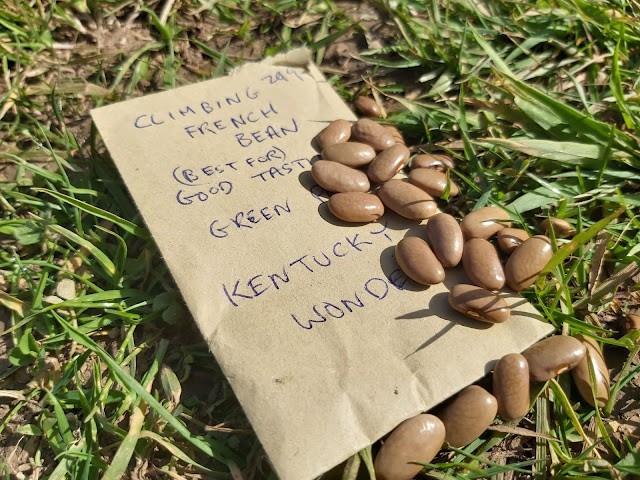 CLIMBING
FRENCH
BEAN
(BEST FOR)
GOOD TAST
GREEN
KENTUCKY
WONDE